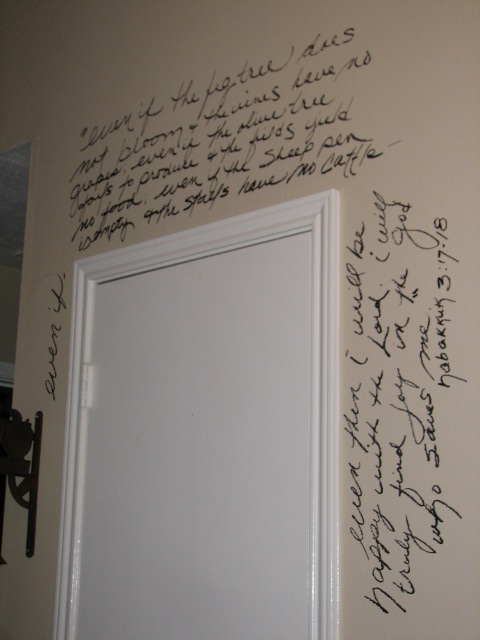 even if.
"even if the fig tree does
not bloom & the vines have no
grapes, even if the olive tree
fails to produce & the fields yield
no food, even if the sheep pen
is empty & the stalls have no cattle-
even then i will be
happy with the Lord. i will
truly find joy in the God
who saves me."
habakkuk 3:17-18